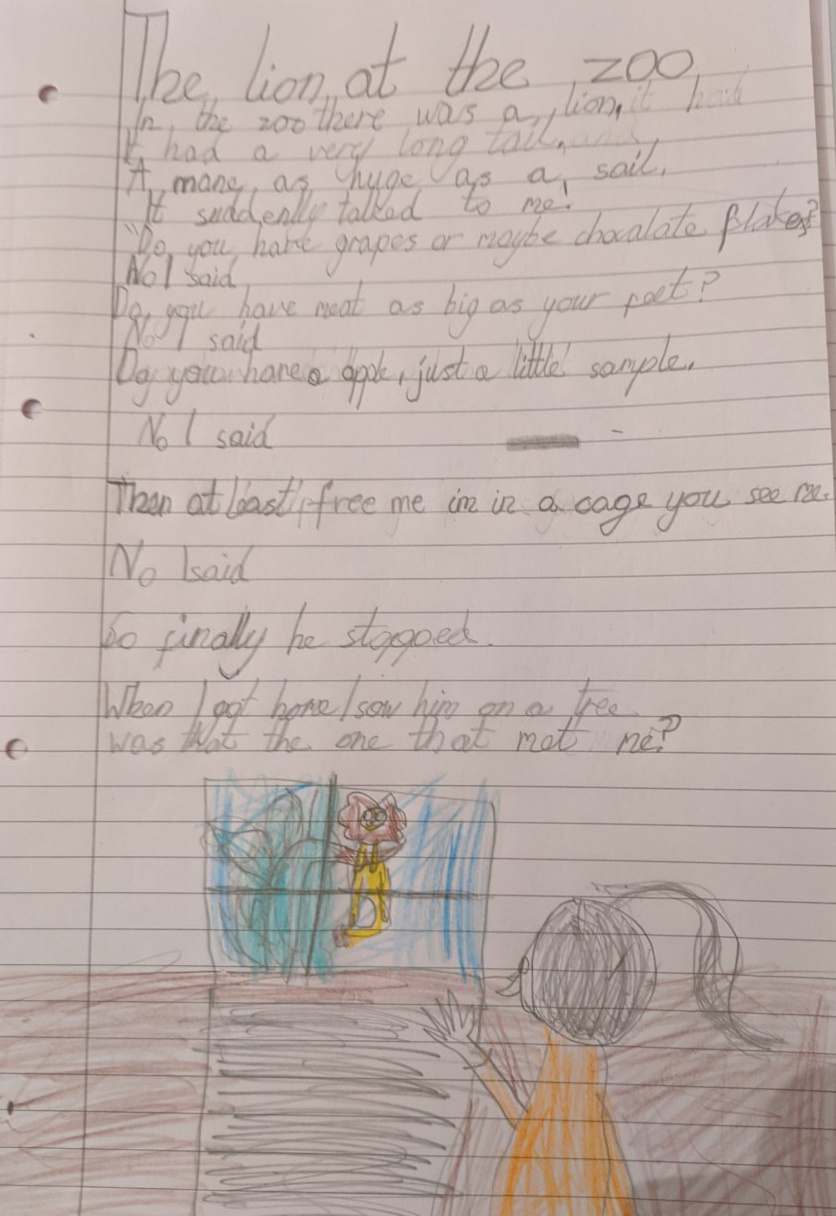 The lion at the zoo
In the zoo there was a lion, it had
It had a very long tail, and
A mane as huge as a sail,
It suddenly talked to me!
"Do you have grapes or maybe chocalate flakes?
No I said
Do you have meat as big as your feet?
No I said
Do you have a apple, just a little sample.
No I said
Then at least, free me im in a cage you see me.
No I said
So finally he stopped.
When I got home I saw him on a tree
was that the one that met me?